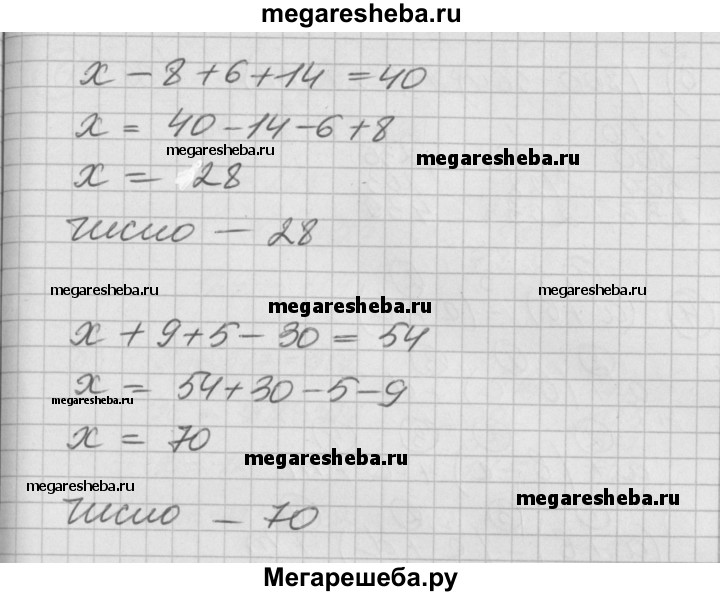 megaresheba.ru
x - 8 + 6 + 14 = 40
x = 40 - 14 - 6 + 8
megaresheba.ru
megaresheba.ru
x = 28
число — 28
megaresheba.ru
megaresheba.ru
megaresheba.ru
x + 9 + 5 - 30 = 54
x = 54 + 30 - 5 - 9
megaresheba.ru
x = 70
megaresheba.ru
megaresheba.ru
megaresheba.ru
число — 70
Мегарешеба.ру